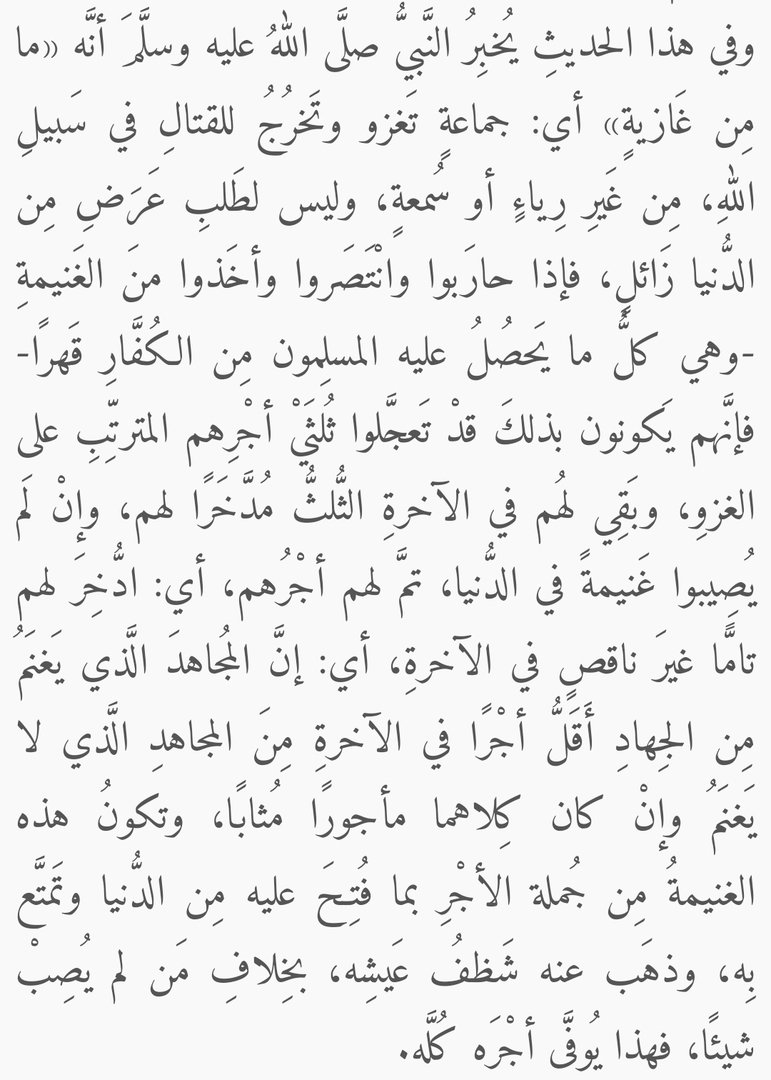 وفي هذا الحديثِ يُخبِرُ النَّبيُّ صلَّى اللهُ عليه وسلَّمَ أنَّه «ما
مِن غَازيةٍ» أي: جماعةٍ تَغزو وتَخرُجُ للقتالِ في سَبيلِ
اللهِ، مِن غَيرِ رِياءٍ أو سُمعةٍ، وليس لطَلبِ عَرَضٍ مِن
الدُّنيا زَائلٍ، فإذا حارَبوا وانْتَصَروا وأخَذوا منَ الغَنيمةِ
-وهي كلُّ ما يَحصُلُ عليه المسلِمون مِن الكُفَّارِ قَهرًا-
فإنَّهم يَكونون بذلكَ قدْ تَعجَّلوا ثُلثَيْ أجْرِهم المترتِّبِ على
الغزوِ، وبَقِي لهُم في الآخرةِ الثُّلثُ مُدَّخَرًا لهم، وإنْ لَم
يُصِيبوا غَنيمةً في الدُّنيا، تمَّ لهم أجْرُهم، أي: ادُّخِرَ لهم
تامًّا غيرَ ناقصٍ في الآخرةِ، أي: إنَّ المُجاهدَ الَّذي يَغنَمُ
مِن الجِهادِ أَقَلُّ أجْرًا في الآخرةِ مِنَ المجاهدِ الَّذي لا
يَغنَمُ وإنْ كان كِلاهما مأجورًا مُثابًا، وتكونُ هذه
الغنيمةُ مِن جُملة الأجْرِ بما فُتِحَ عليه مِن الدُّنيا وتَمتَّع
بِه، وذهَب عنه شَظفُ عَيشِه، بخِلافِ مَن لم يُصِبْ
شيئًا، فهذا يُوفَّى أجْرَه كُلَّه.